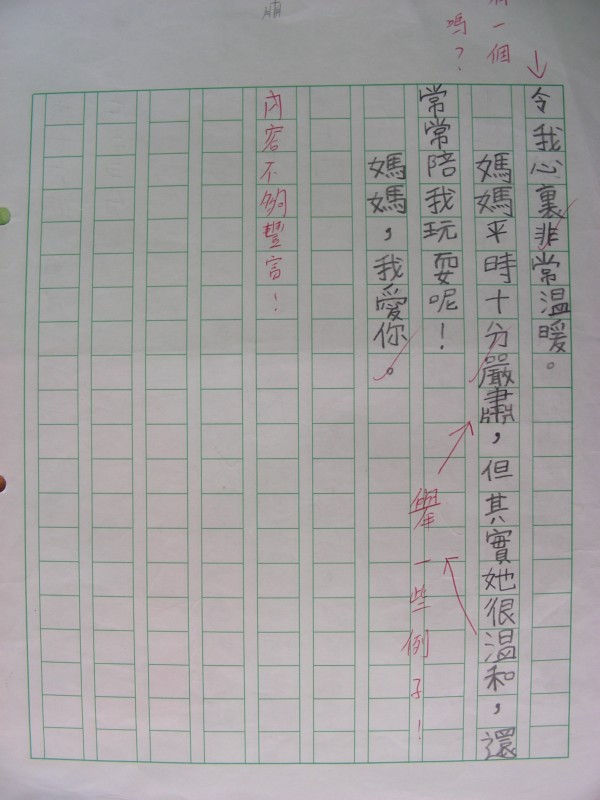 一個
嗎?
令我心裏非常溫暖。
媽媽平時十分嚴肅,但其實她很溫和,還
常常陪我玩耍呢!
舉一些例子!
媽媽,我愛你。
內容不夠豐富!